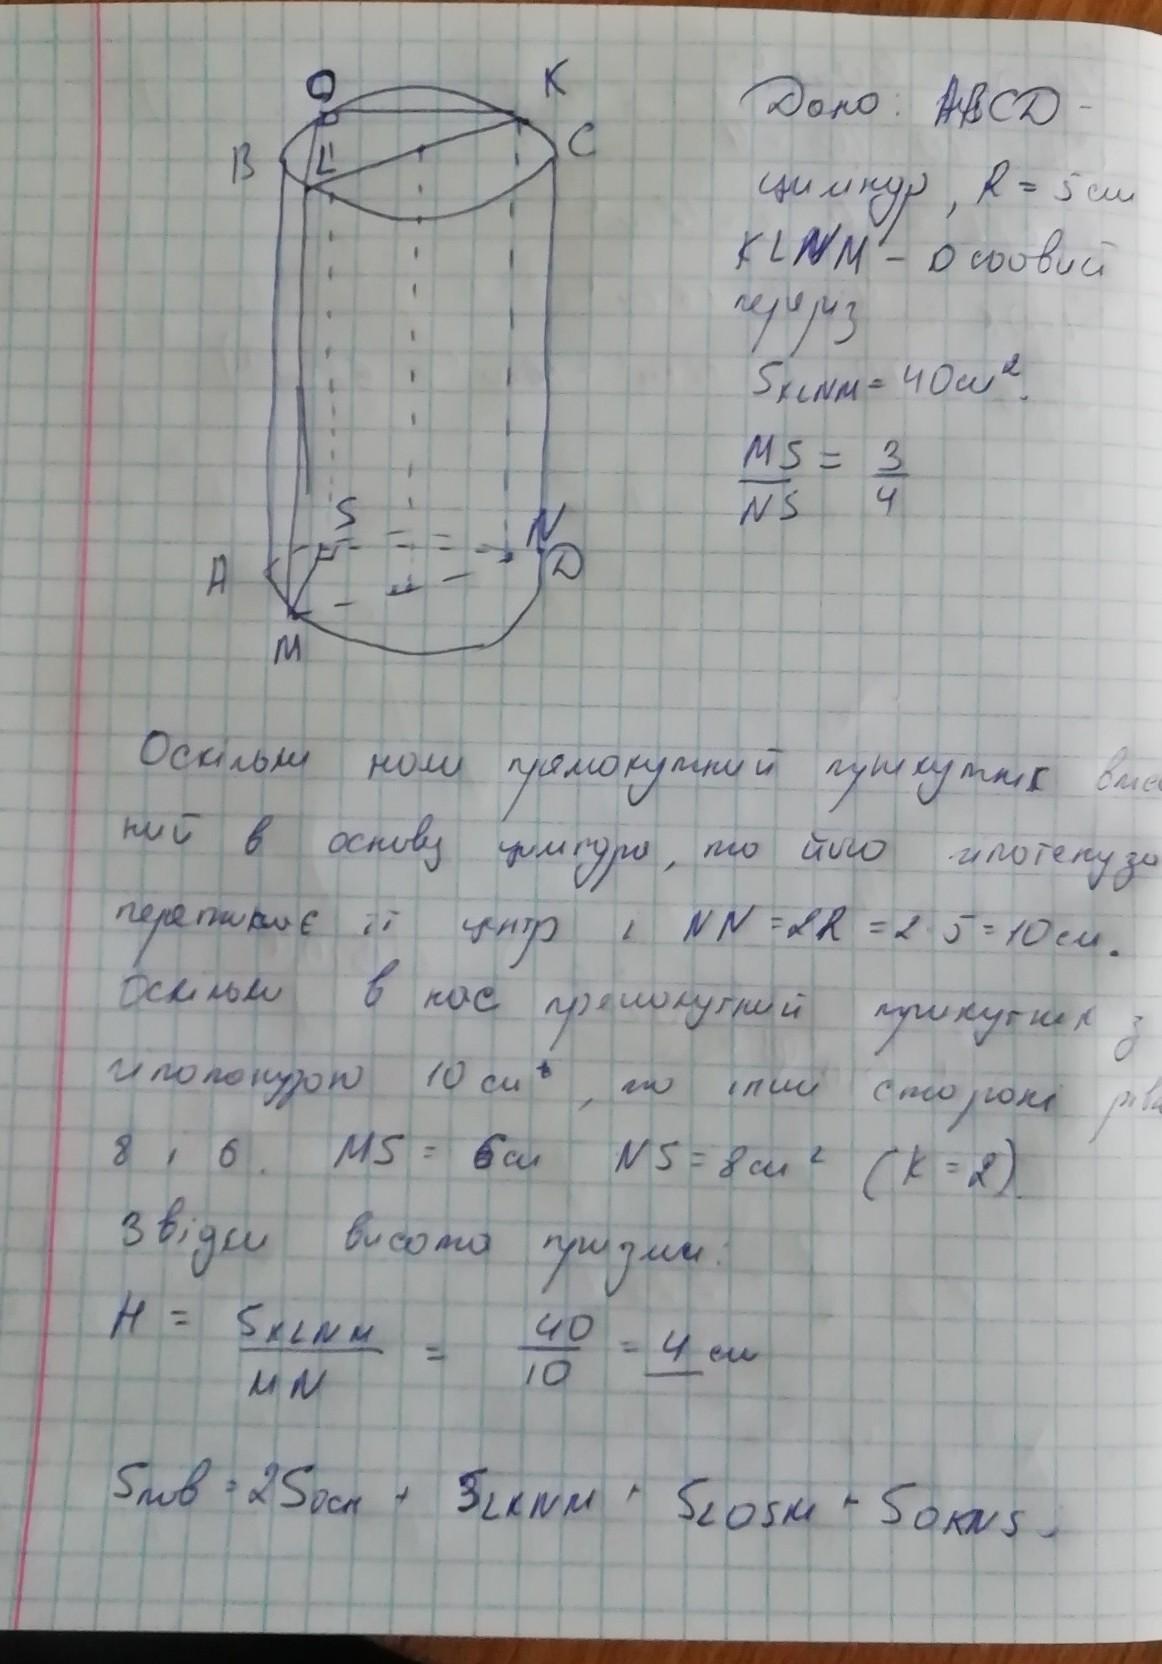 O K
B L C
Дано: ABCD -
циліндр, R = 5 см
KLNM - осьовий
переріз
S_KLNM = 40 см².
MS/NS = 3/4
S N
A D
M
Оскільки наш прямокутний трикутник
ний в основу циліндра, то його гіпотенуза
перетинає її центр і NN = 2R = 2·5 = 10 см.
Оскільки в нас прямокутний трикутник з
гіпотенузою 10 см, то інші сторони
8 і 6. MS = 6 см NS = 8 см² (K = 2).
Звідки висота призми:
H = S_KLNM/MN = 40/10 = 4 см
S пов = 2S осн + S_LKNM + S_LOSM + S_OKNS =